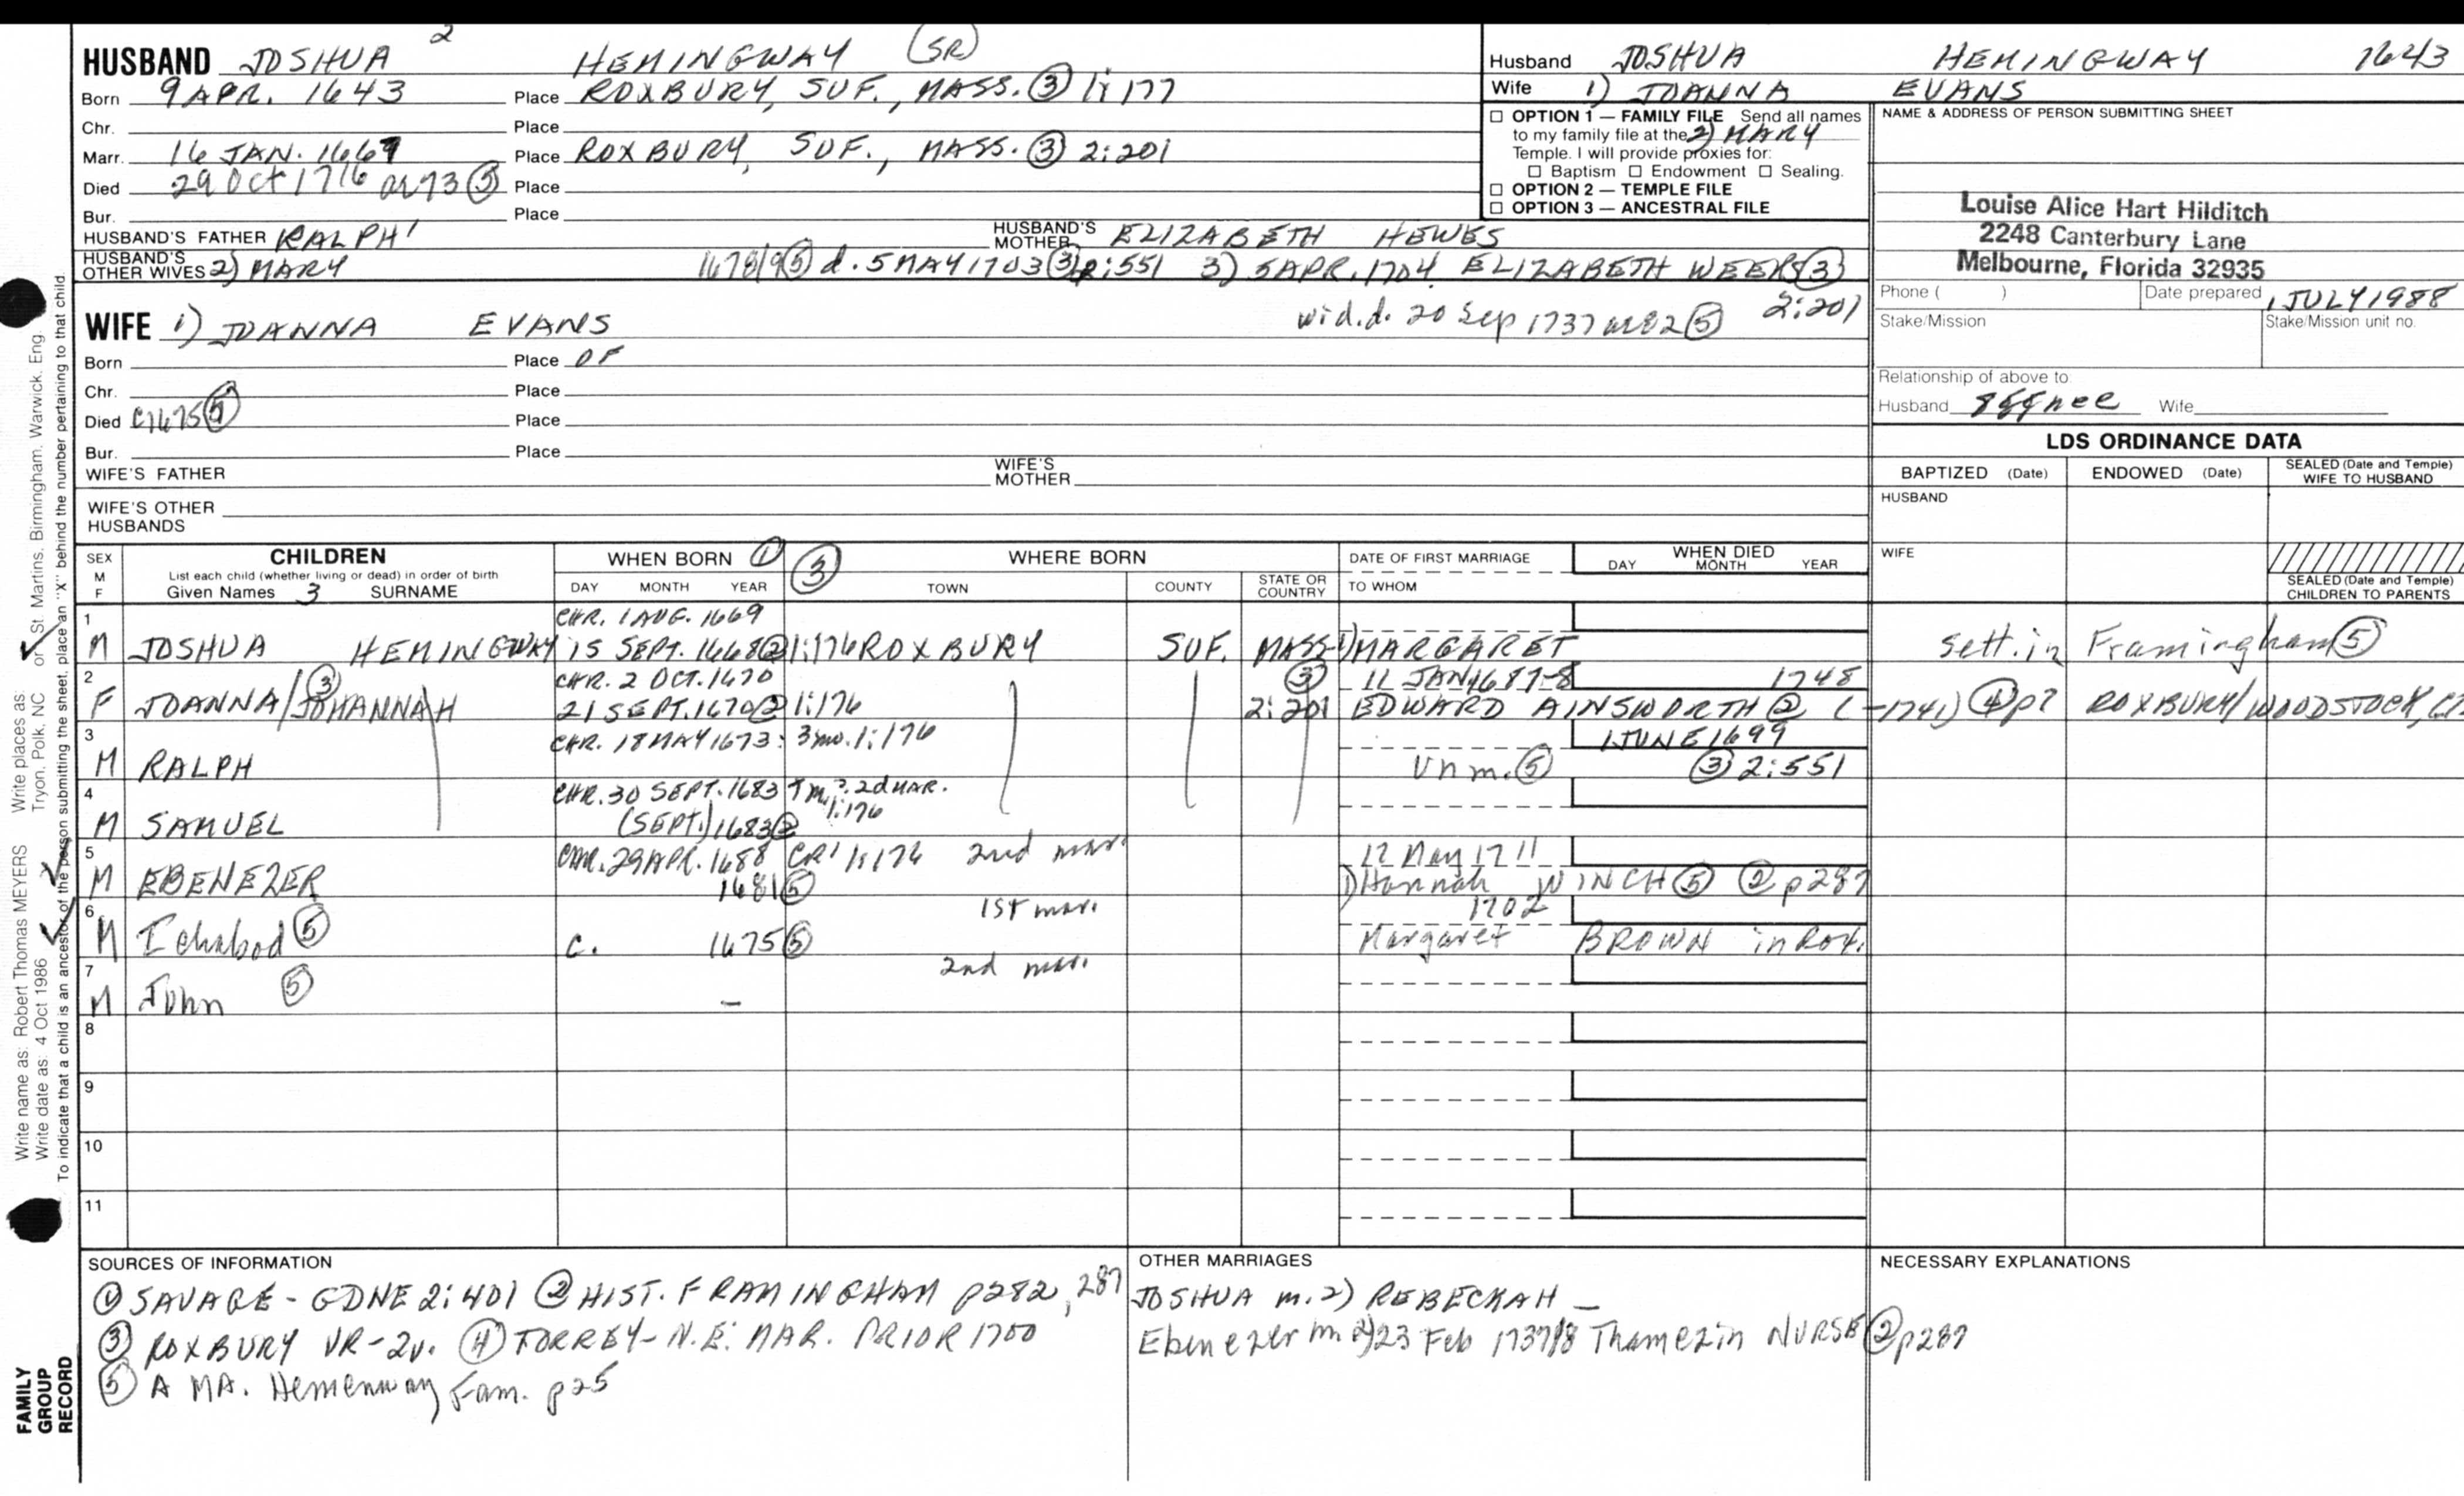 HUSBAND JOSHUA 2 HEMINGWAY (SR)
Born 9 APR. 1643 Place ROXBURY, SUF., MASS. ③ 1:177
Chr. Place
Marr. 16 JAN. 1667 Place ROXBURY, SUF., MASS. ③ 2:201
Died 29 Oct 1716 ae 73 ⑤ Place
Bur. Place
HUSBAND'S FATHER RALPH 1 HUSBAND'S MOTHER ELIZABETH HEWES
HUSBAND'S OTHER WIVES 2) MARY 1678/9 ⑤ d. 5 MAY 1703 ③ 2:551 3) 5 APR. 1704 ELIZABETH WEEKS ③ 2:201
wid. d. 20 Sep 1737 ae 82 ⑤
WIFE 1) JOANNA EVANS
Born Place OF
Chr. Place
Died C1675 ⑤ Place
Bur. Place
WIFE'S FATHER WIFE'S MOTHER
WIFE'S OTHER HUSBANDS
Husband JOSHUA HEMINGWAY 1643
Wife 1) JOANNA EVANS
2) MARY
☐ OPTION 1 — FAMILY FILE Send all names
to my family file at the
Temple. I will provide proxies for:
☐ Baptism ☐ Endowment ☐ Sealing.
☐ OPTION 2 — TEMPLE FILE
☐ OPTION 3 — ANCESTRAL FILE
NAME & ADDRESS OF PERSON SUBMITTING SHEET
Louise Alice Hart Hilditch
2248 Canterbury Lane
Melbourne, Florida 32935
Phone ( ) Date prepared 1 JULY 1988
Stake/Mission Stake/Mission unit no.
Relationship of above to:
Husband 8ggnee Wife
LDS ORDINANCE DATA
BAPTIZED (Date) ENDOWED (Date) SEALED (Date and Temple) WIFE TO HUSBAND
HUSBAND
WIFE
SEALED (Date and Temple) CHILDREN TO PARENTS
SEX M F
CHILDREN
List each child (whether living or dead) in order of birth
Given Names 3 SURNAME
WHEN BORN ① ③ WHERE BORN
DAY MONTH YEAR TOWN COUNTY STATE OR COUNTRY
DATE OF FIRST MARRIAGE
TO WHOM
WHEN DIED
DAY MONTH YEAR
1 CHR. 1 AUG. 1669
M JOSHUA HEMINGWAY 15 SEPT. 1668 ② 1:176 ROXBURY SUF. MASS. 1) MARGARET sett. in Framingham ⑤
2 CHR. 2 OCT. 1670 ③ 11 JAN 1687-8 1748
F JOANNA/JOHANNAH ③ 21 SEPT. 1670 ② 1:176 2:201 EDWARD AINSWORTH ② (-1741) ④ p7 ROXBURY/WOODSTOCK, CT
3 CHR. 18 MAY 1673: 3mo. 1:176 1 JUNE 1699
M RALPH Unm. ⑤ ③ 2:551
4 CHR. 30 SEPT. 1683 7m? 2d MAR. 1:176
M SAMUEL (SEPT.) 1683 ②
5 CHR. 29 APR. 1688 CR1 1:176 2nd mar. 12 May 1711
M EBENEZER 1681 ⑤ 1) Hannah WINCH ⑤ ② p287
6 1st mar. 1702
M Ichabod ⑤ c. 1675 ⑤ Margaret BROWN in Rox.
7 2nd mar.
M John ⑤ –
8
9
10
11
SOURCES OF INFORMATION
① SAVAGE - GDNE 2:401 ② HIST. FRAMINGHAM p282, 287
③ ROXBURY VR-2v. ④ TORREY-N.E. MAR. PRIOR 1700
⑤ A MA. Hemenway Fam. p25
OTHER MARRIAGES
JOSHUA m. 2) REBECKAH –
Ebenezer m 2) 23 Feb 1737/8 Thamezin NURSE ② p287
NECESSARY EXPLANATIONS
Write name as: Robert Thomas MEYERS Write places as: Tryon, Polk, NC or St. Martins, Birmingham, Warwick, Eng.
Write date as: 4 Oct 1986
To indicate that a child is an ancestor of the person submitting the sheet, place an "X" behind the number pertaining to that child.
FAMILY GROUP RECORD